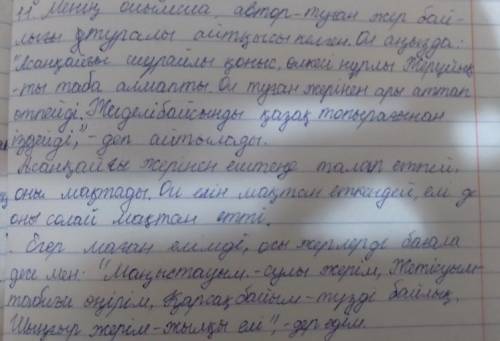 11. Менің ойымша автор-туған жер бай-
лығы туралы айтқысы келген. Ол аңызда:
"Асанқайғы шұрайлы қоныс, өлкей нұрлы Жерұйық
-ты таба алмапты. Ол туған жерінен ары аттап
өтпейді. Жиделібайсынды қазақ топырағынан
іздейді," - деп айтылады.
Асанқайғы жерінен ештеңе талап етпей,
оны мақтады. Ол елін мақтан еткендей, ел де
оны солай мақтан етті.
Егер маған елімді, осы жерлерді бағала
десе мен: "Маңыстауым - сулы жерім, Жетісуым-
табиғи өңірім, Қарсақбайым - түзді байлық,
Шыңғыр жерім - жылқы елі", - дер едім.